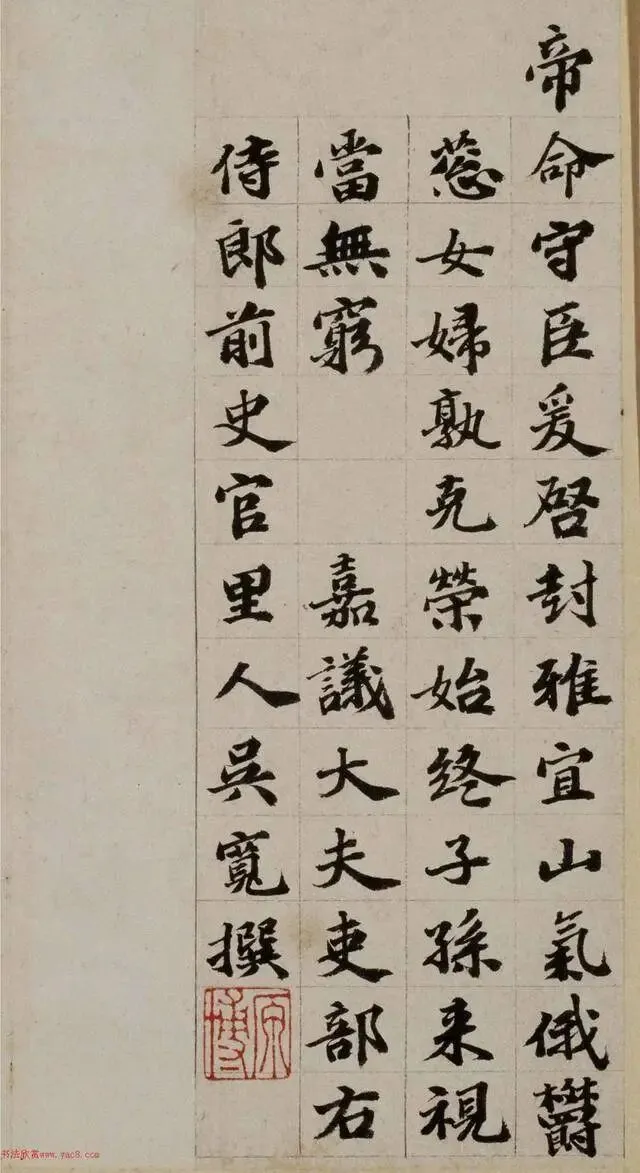 帝命守臣爰啓封雅宜山氣俄欝
慈女婦孰克榮始終子孫来視
當無窮 嘉議大夫吏部右
侍郎前史官里人吳寬撰
原博
书法欣赏www.yac8.com